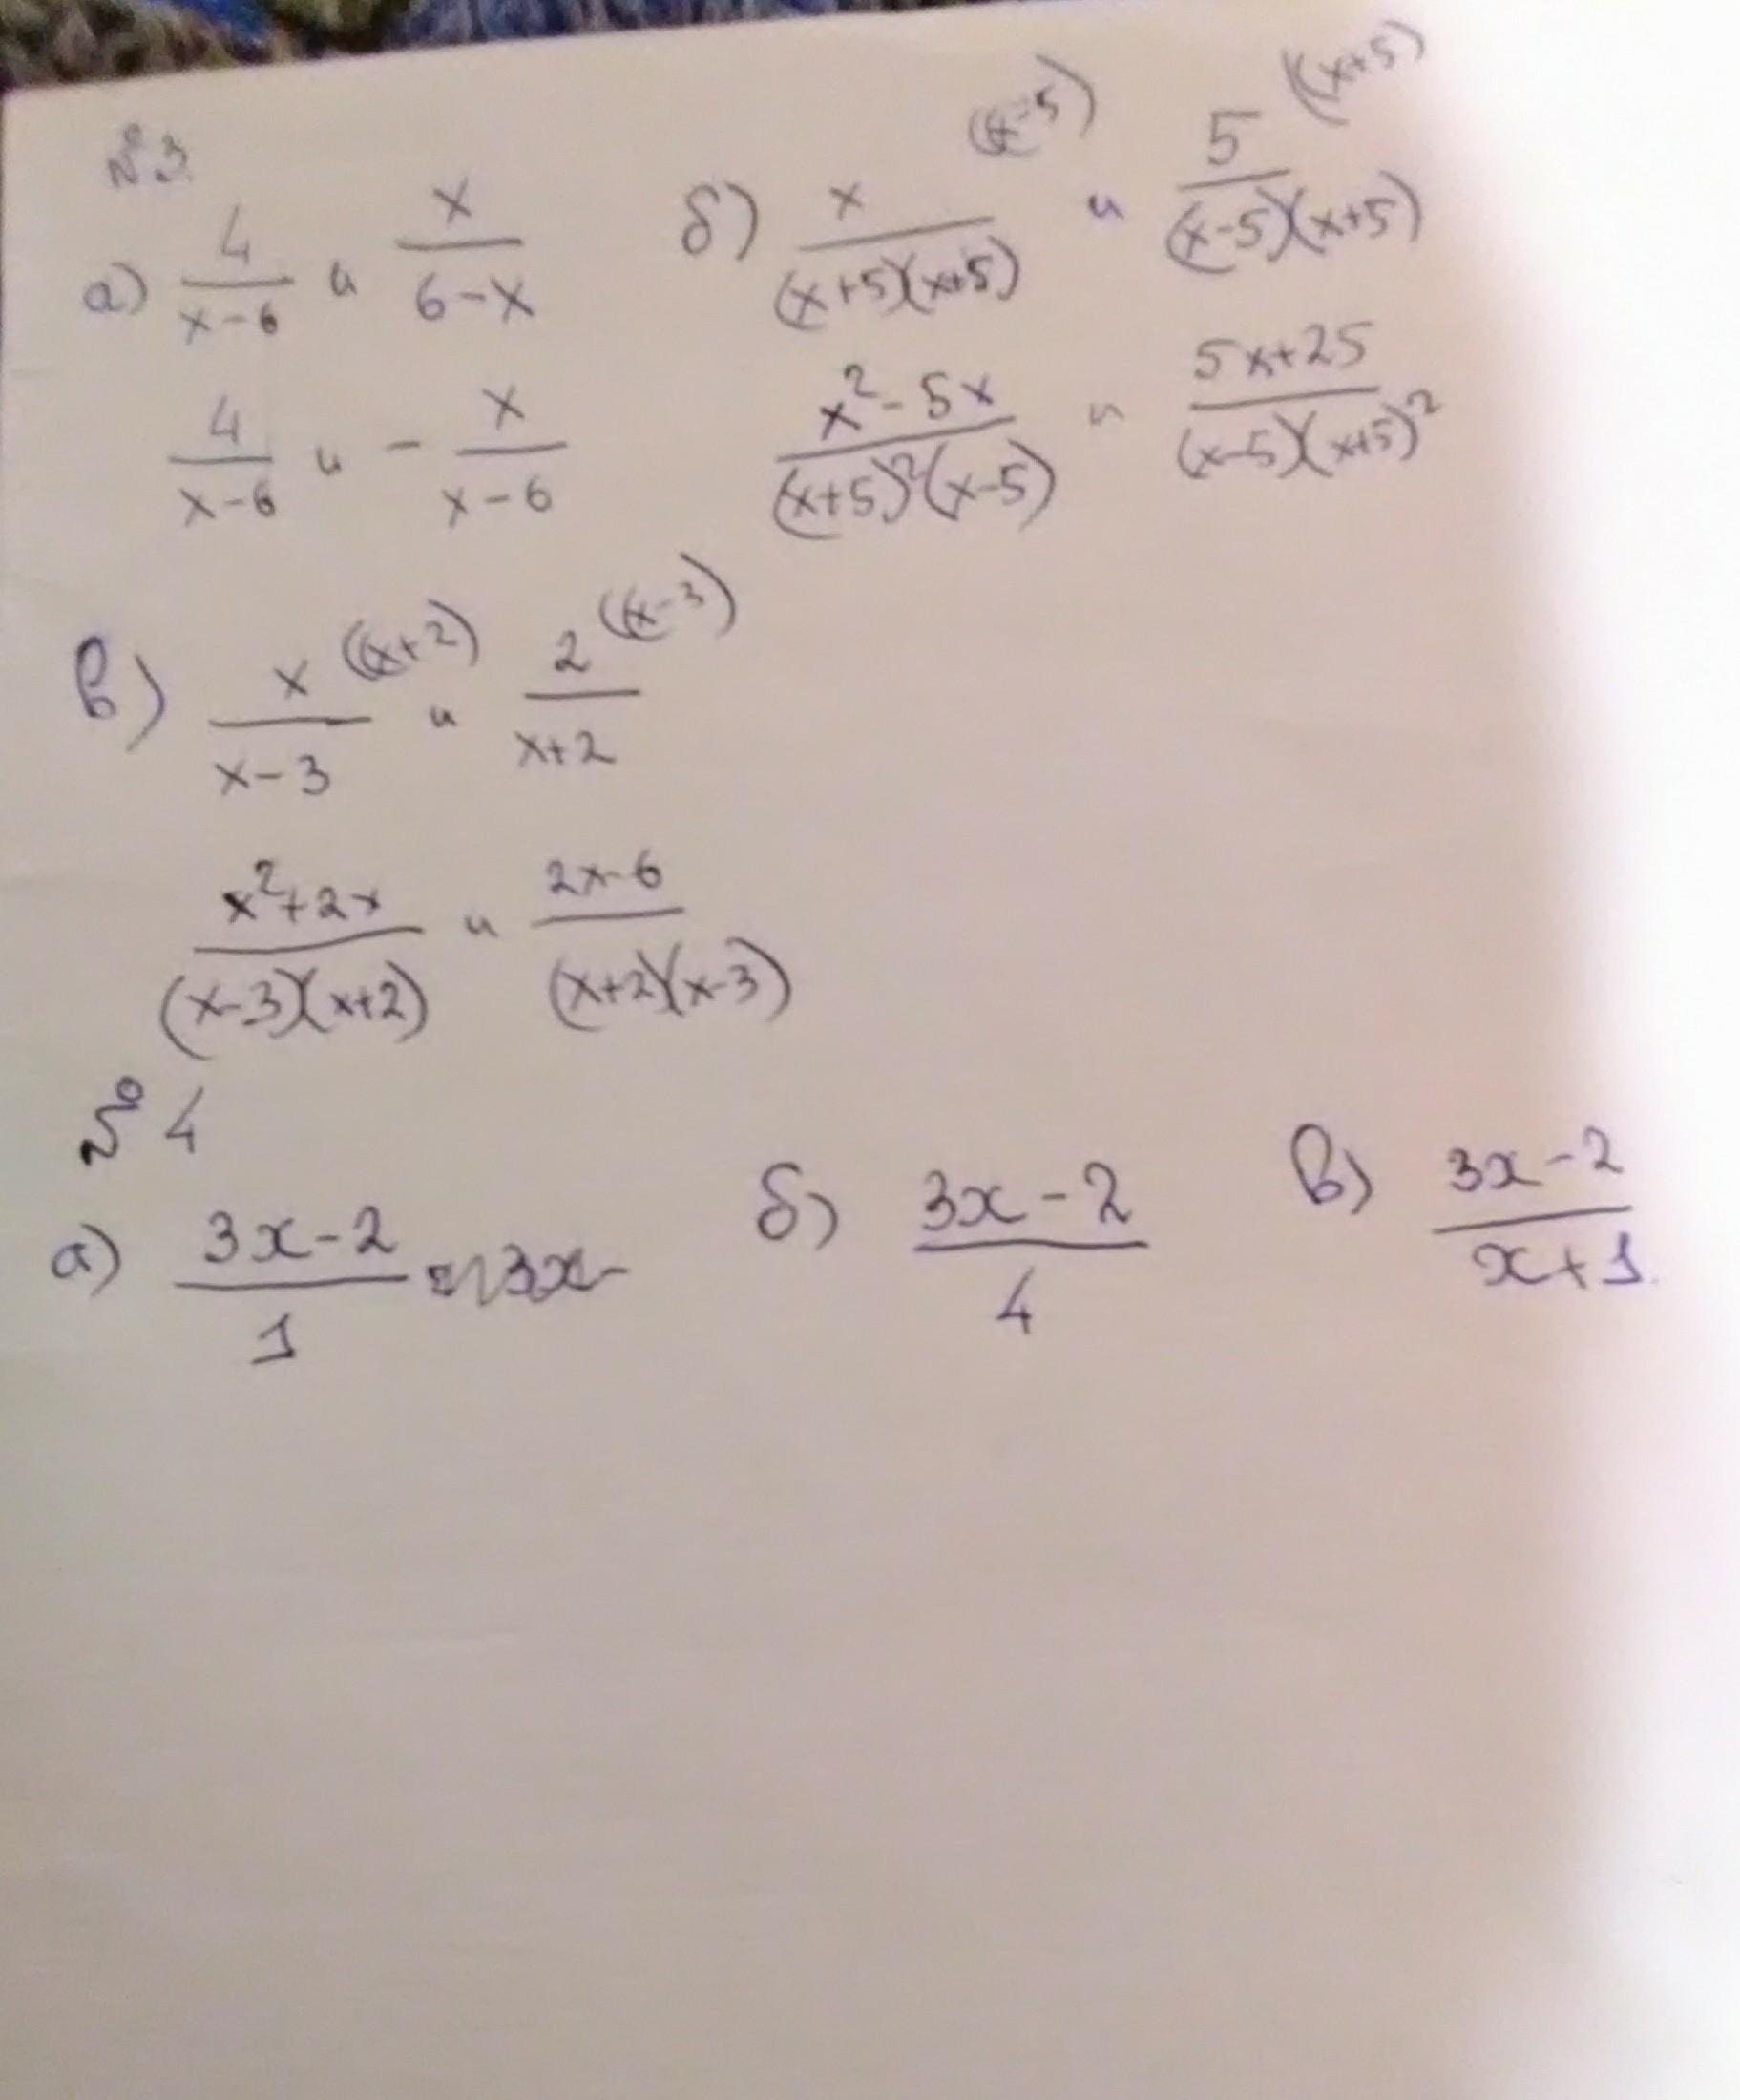 №3.
а) 4/(x-6) и x/(6-x)
4/(x-6) и -x/(x-6)
б) x/((x+5)(x+5)) (x-5) и 5/((x-5)(x+5)) (x+5)
(x²-5x)/((x+5)²(x-5)) и (5x+25)/((x-5)(x+5)²)
в) x/(x-3) (x+2) и 2/(x+2) (x-3)
(x²+2x)/((x-3)(x+2)) и (2x-6)/((x+2)(x-3))
№4
а) (3x-2)/1 б) (3x-2)/4 в) (3x-2)/(x+1)